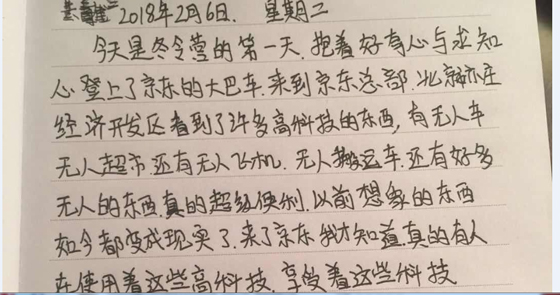 2018年2月6日. 星期二
今天是冬令营的第一天.抱着好奇心与求知
心登上了京东的大巴车.来到京东总部.北京亦庄
经济开发区看到了许多高科技的东西,有无人车
无人超市.还有无人飞机.无人搬运车.还有好多
无人的东西.真的超级便利.以前想象的东西
如今都变成现实了.来了京东我才知道真的有人
在使用着这些高科技.享受着这些科技